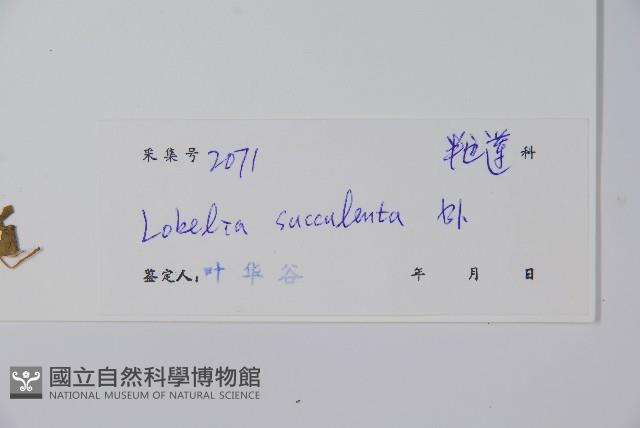 采集号 2071 半边莲 科
Lobelia succulenta Bl.
鉴定人: 叶华谷 年 月 日
國立自然科學博物館
NATIONAL MUSEUM OF NATURAL SCIENCE